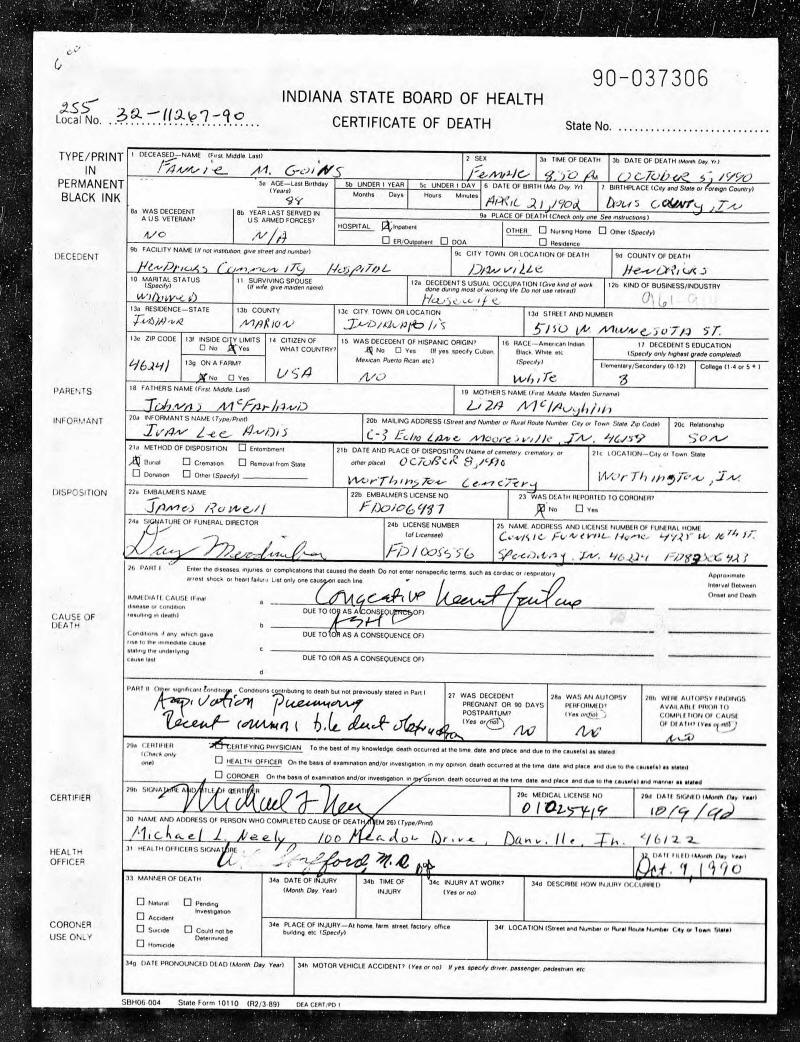 6 00
90-037306
INDIANA STATE BOARD OF HEALTH
255
Local No. 32-11267-90
CERTIFICATE OF DEATH
State No.
TYPE/PRINT
IN
PERMANENT
BLACK INK
1 DECEASED—NAME (First Middle Last)
FANNIE M. GOINS
2 SEX
FEMALE
3a TIME OF DEATH
8:50 P M
3b DATE OF DEATH (Month Day, Yr)
OCTOBER 5, 1990
5a AGE—Last Birthday (Years)
88
5b UNDER 1 YEAR
Months Days
5c UNDER 1 DAY
Hours Minutes
6 DATE OF BIRTH (Mo Day, Yr)
APRIL 21, 1902
7 BIRTHPLACE (City and State or Foreign Country)
COUNTY, IN
8a WAS DECEDENT A U.S. VETERAN?
NO
8b YEAR LAST SERVED IN U.S. ARMED FORCES?
N/A
9a PLACE OF DEATH (Check only one See instructions)
HOSPITAL Inpatient
ER/Outpatient DOA
OTHER Nursing Home Other (Specify)
Residence
DECEDENT
9b FACILITY NAME (If not institution, give street and number)
HENDRICKS COMMUNITY HOSPITAL
9c CITY TOWN OR LOCATION OF DEATH
DANVILLE
9d COUNTY OF DEATH
HENDRICKS
10 MARITAL STATUS (Specify)
WIDOWED
11 SURVIVING SPOUSE (If wife, give maiden name)
12a DECEDENT'S USUAL OCCUPATION (Give kind of work done during most of working life Do not use retired)
Housewife
12b KIND OF BUSINESS/INDUSTRY
13a RESIDENCE—STATE
INDIANA
13b COUNTY
MARION
13c CITY TOWN OR LOCATION
INDIANAPOLIS
13d STREET AND NUMBER
5150 W MINNESOTA ST.
13e ZIP CODE
46241
13f INSIDE CITY LIMITS
No Yes
13g ON A FARM?
No Yes
14 CITIZEN OF WHAT COUNTRY?
USA
15 WAS DECEDENT OF HISPANIC ORIGIN?
No Yes (If yes specify Cuban, Mexican, Puerto Rican etc)
NO
16 RACE—American Indian Black, White etc (Specify)
White
17 DECEDENT'S EDUCATION
(Specify only highest grade completed)
Elementary/Secondary (0-12) College (1-4 or 5 +)
8
PARENTS
18 FATHER'S NAME (First, Middle, Last)
MCFARLAND
19 MOTHER'S NAME (First, Middle, Maiden Surname)
LIZA McLAughlin
INFORMANT
20a INFORMANT'S NAME (Type/Print)
IVAN LEE ANDIS
20b MAILING ADDRESS (Street and Number or Rural Route Number City or Town State Zip Code)
C-3 Echo LANE Mooresville, IN. 46158
20c Relationship
SON
21a METHOD OF DISPOSITION Entombment
Burial Cremation Removal from State
Donation Other (Specify)
21b DATE AND PLACE OF DISPOSITION (Name of cemetery, crematory, or other place)
OCTOBER 8, 1990
WORTHINGTON CEMETERY
21c LOCATION—City or Town State
WORTHINGTON, IN.
DISPOSITION
22a EMBALMER'S NAME
JAMES ROWELL
22b EMBALMER'S LICENSE NO
FD0106487
23 WAS DEATH REPORTED TO CORONER?
No Yes
24a SIGNATURE OF FUNERAL DIRECTOR
24b LICENSE NUMBER (of Licensee)
FD1005556
25 NAME, ADDRESS AND LICENSE NUMBER OF FUNERAL HOME
FUNERAL HOME 4925 W 16th ST.
SPEEDWAY, IN. 46224
26 PART I Enter the diseases, injuries, or complications that caused the death. Do not enter nonspecific terms, such as cardiac or respiratory
arrest, shock, or heart failure. List only one cause on each line.
Approximate Interval Between Onset and Death
CAUSE OF DEATH
IMMEDIATE CAUSE (Final disease or condition resulting in death)
a Congestive heart failure
DUE TO (OR AS A CONSEQUENCE OF)
b ASHD
DUE TO (OR AS A CONSEQUENCE OF)
Conditions if any, which gave rise to the immediate cause stating the underlying cause last
c
DUE TO (OR AS A CONSEQUENCE OF)
d
PART II Other significant conditions - Conditions contributing to death but not previously stated in Part I
Aspiration Pneumonia
Recent common bile duct obstruction
27 WAS DECEDENT PREGNANT OR 90 DAYS POSTPARTUM?
(Yes or no)
NO
28a WAS AN AUTOPSY PERFORMED?
(Yes or no)
NO
28b WERE AUTOPSY FINDINGS AVAILABLE PRIOR TO COMPLETION OF CAUSE OF DEATH? (Yes or no)
NO
29a CERTIFIER (Check only one)
CERTIFYING PHYSICIAN To the best of my knowledge, death occurred at the time, date, and place, and due to the cause(s) as stated
HEALTH OFFICER On the basis of examination and/or investigation, in my opinion, death occurred at the time, date, and place, and due to the cause(s) as stated
CORONER On the basis of examination and/or investigation, in my opinion, death occurred at the time, date, and place, and due to the cause(s) and manner as stated
CERTIFIER
29b SIGNATURE AND TITLE OF CERTIFIER
29c MEDICAL LICENSE NO
01025419
29d DATE SIGNED (Month Day Year)
10/9/90
30 NAME AND ADDRESS OF PERSON WHO COMPLETED CAUSE OF DEATH (ITEM 26) (Type/Print)
Michael L. Neely, 100 Meadow Drive, Danville, In. 46122
HEALTH OFFICER
31 HEALTH OFFICER'S SIGNATURE
M.D.
32 DATE FILED (Month Day Year)
Oct. 9, 1990
33 MANNER OF DEATH
Natural Pending Investigation
Accident
Suicide Could not be Determined
Homicide
34a DATE OF INJURY (Month Day Year)
34b TIME OF INJURY
34c INJURY AT WORK? (Yes or no)
34d DESCRIBE HOW INJURY OCCURRED
CORONER USE ONLY
34e PLACE OF INJURY—At home, farm, street, factory, office building, etc (Specify)
34f LOCATION (Street and Number or Rural Route Number City or Town State)
34g DATE PRONOUNCED DEAD (Month Day Year)
34h MOTOR VEHICLE ACCIDENT? (Yes or no) If yes, specify driver, passenger, pedestrian, etc
SBH06-004 State Form 10110 (R2/3-89) DEA CERT/PD 1